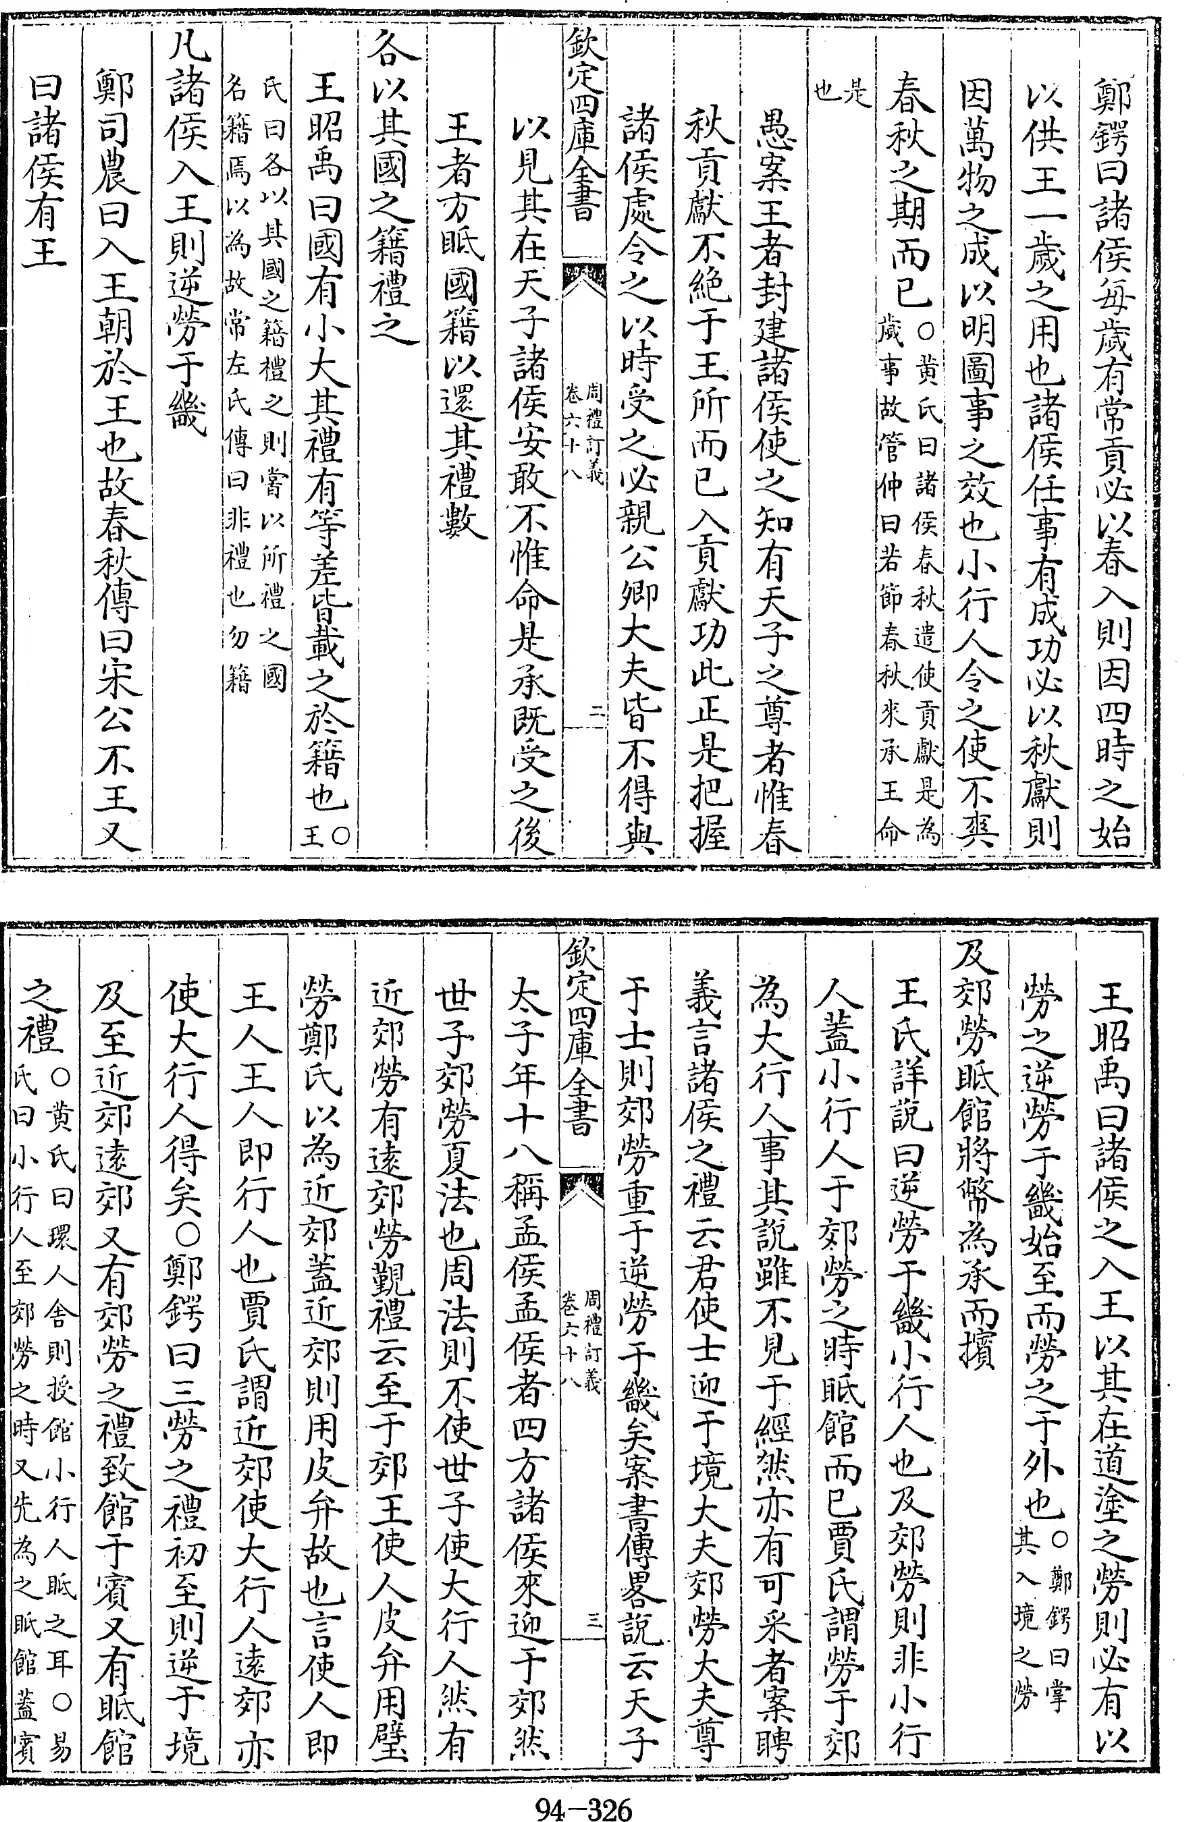 鄭鍔曰諸侯每歲有常貢必以春入則因四時之始
以供王一歲之用也諸侯任事有成功必以秋獻則
因萬物之成以明圖事之效也小行人令之使不爽
春秋之期而已○黃氏曰諸侯春秋遣使貢獻是為
歲事故管仲曰若節春秋來承王命
是
也
愚案王者封建諸侯使之知有天子之尊者惟春
秋貢獻不絶于王所而已入貢獻功此正是把握
諸侯處令之以時受之必親公卿大夫皆不得與
欽定四庫全書
周禮訂義
卷六十八
二
以見其在天子諸侯安敢不惟命是承既受之後
王者方眡國籍以還其禮數
各以其國之籍禮之
王昭禹曰國有小大其禮有等差皆載之於籍也○
王
氏曰各以其國之籍禮之則嘗以所禮之國
名籍焉以為故常左氏傳曰非禮也勿籍
凡諸侯入王則逆勞于畿
鄭司農曰入王朝於王也故春秋傳曰宋公不王又
曰諸侯有王
王昭禹曰諸侯之入王以其在道塗之勞則必有以
勞之逆勞于畿始至而勞之于外也○鄭鍔曰掌
其入境之勞
及郊勞眡館將幣為承而擯
王氏詳說曰逆勞于畿小行人也及郊勞則非小行
人蓋小行人于郊勞之時眡館而已賈氏謂勞于郊
為大行人事其說雖不見于經然亦有可采者案聘
義言諸侯之禮云君使士迎于境大夫郊勞大夫尊
于士則郊勞重于逆勞于畿矣案書傳畧說云天子
欽定四庫全書
周禮訂義
卷六十八
三
太子年十八稱孟侯孟侯者四方諸侯來迎于郊然
世子郊勞夏法也周法則不使世子使大行人然有
近郊勞有遠郊勞覲禮云至于郊王使人皮弁用璧
勞鄭氏以為近郊蓋近郊則用皮弁故也言使人即
王人王人即行人也賈氏謂近郊使大行人遠郊亦
使大行人得矣○鄭鍔曰三勞之禮初至則逆于境
及至近郊遠郊又有郊勞之禮致館于賓又有眡館
之禮○黃氏曰環人舍則授館小行人眡之耳○易
氏曰小行人至郊勞之時又先為之眡館蓋賓
94-326